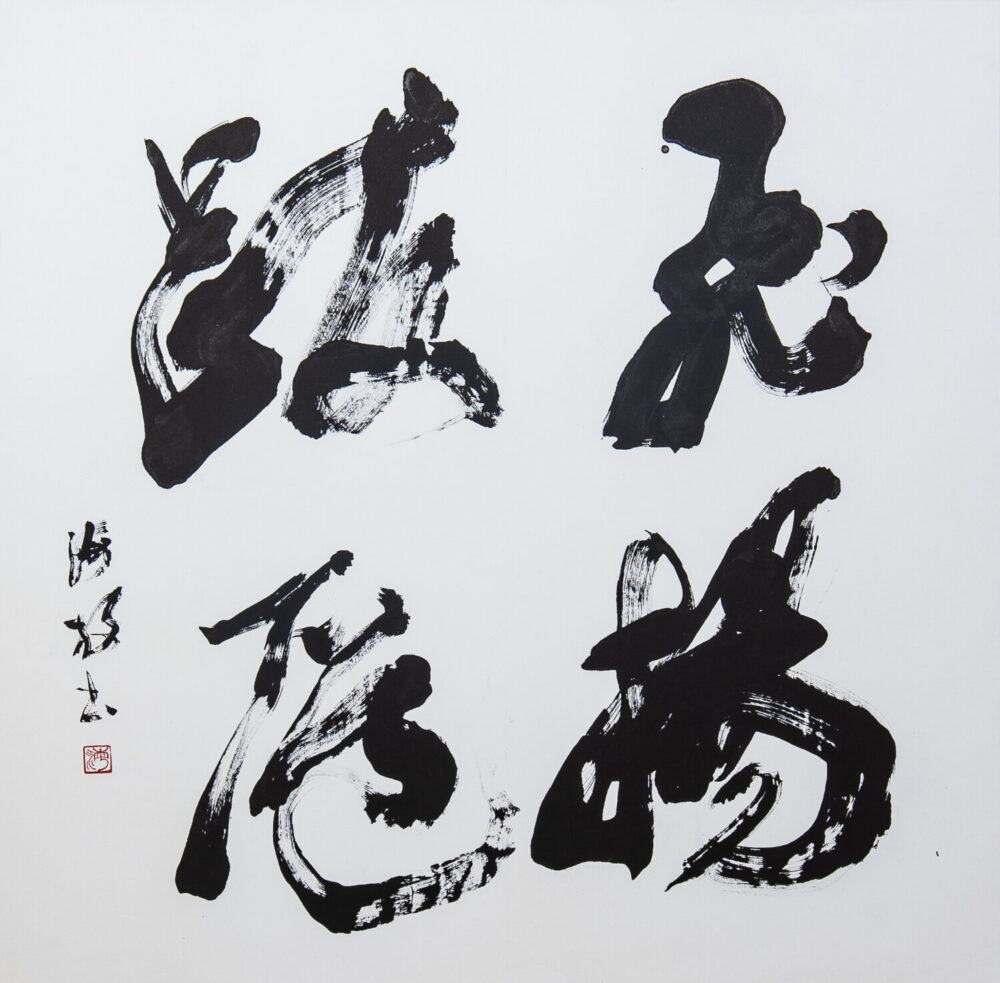 飛揚
跋扈
海 書